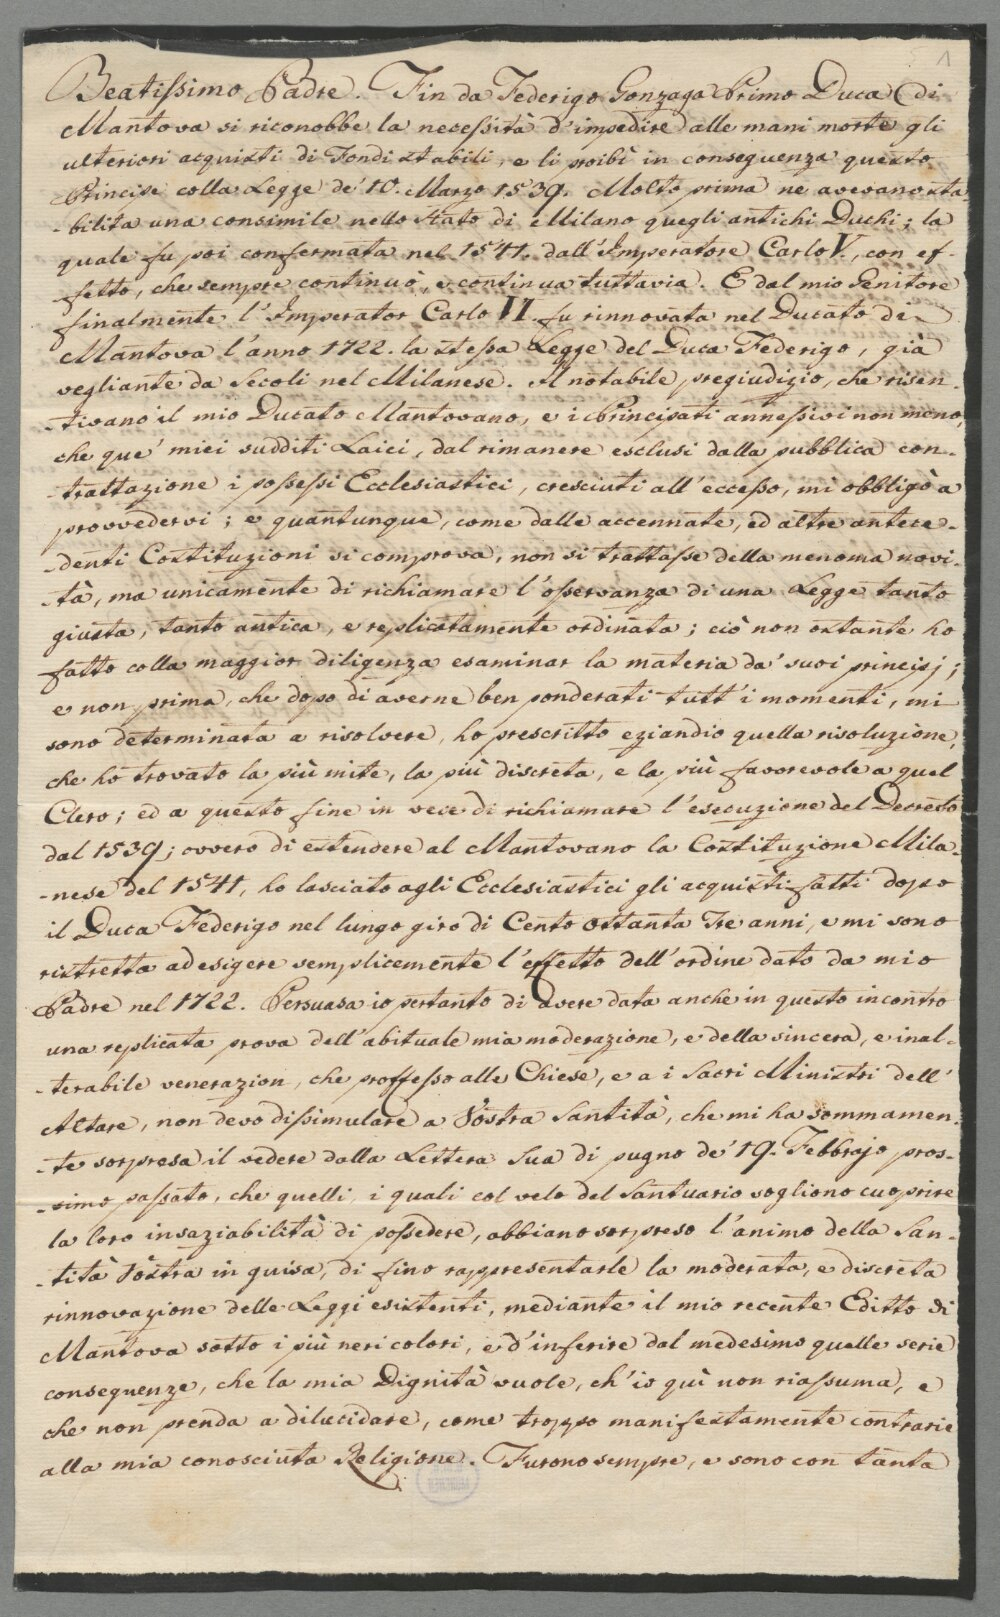 1
Beatissimo Padre. Fin da Federigo Gonzaga Primo Duca di
Mantova si riconobbe la necessità d'impedire alle mani morte gli
ulteriori acquisti di Fondi stabili, e li proibì in conseguenza questo
Principe colla Legge de' 10. Marzo 1539. Molto prima ne avevano sta-
-bilita una consimile nello Stato di Milano quegli antichi Duchi; la
quale fu poi confermata nel 1541. dall'Imperatore Carlo V., con ef-
-fetto, che sempre continuò, e continua tuttavia. E dal mio Genitore
finalmente l'Imperator Carlo VI. fu rinnovata nel Ducato di
Mantova l'anno 1722. la stessa Legge del Duca Federigo, già
vegliante da Secoli nel Milanese. Il notabile pregiudizio, che risen-
-tivano il mio Ducato Mantovano, e i Principati annessivi non meno,
che que' miei sudditi Laici, dal rimanere esclusi dalla pubblica con-
-trattazione i possessi Ecclesiastici, cresciuti all'eccesso, mi obbligò a
provvedervi; e quantunque, come dalle accennate, ed altre antece-
-denti Costituzioni si comprova, non si trattasse della menoma novi-
-tà, ma unicamente di richiamare l'osservanza di una Legge tanto
giusta, tanto antica, e replicatamente ordinata; ciò non ostante ho
fatto colla maggior diligenza esaminar la materia da' suoi principj;
e non prima, che dopo di averne ben ponderati tutt'i momenti, mi
sono determinata a risolvere, ho prescritto eziandio quella risoluzione,
che ho trovato la più mite, la più discreta, e la più favorevole a quel
Clero; ed a questo fine in vece di richiamare l'esecuzione del Decreto
dal 1539; ovvero di estendere al Mantovano la Costituzione Mila-
-nese del 1541, ho lasciato agli Ecclesiastici gli acquisti fatti dopo
il Duca Federigo nel lungo giro di Cento Ottanta Tre anni, e mi sono
ristretta ad esigere semplicemente l'effetto dell'ordine dato da mio
Padre nel 1722. Persuasa io pertanto di avere data anche in questo incontro
una replicata prova dell'abituale mia moderazione, e della sincera, e inal-
-terabile venerazion, che proffesso alle Chiese, e a i Sacri Ministri dell'
Altare, non devo dissimulare a Vostra Santità, che mi ha sommamen-
-te sorpresa il vedere dalla Lettera Sua di pugno de' 19. Febbrajo pros-
-simo passato, che quelli, i quali col velo del Santuario vogliono cuoprire
la loro insaziabilità di possedere, abbiano sorpreso l'animo della San-
-tità Vostra in guisa, di fino rappresentarle la moderata, e discreta
rinnovazione delle Leggi esistenti, mediante il mio recente Editto di
Mantova sotto i più neri colori, e d'inferire dal medesimo quelle serie
conseguenze, che la mia Dignità vuole, ch'io quì non riassuma, e
che non prenda a dilucidare, come troppo manifestamente contrarie
alla mia conosciuta Religione. Furono sempre, e sono con tanta